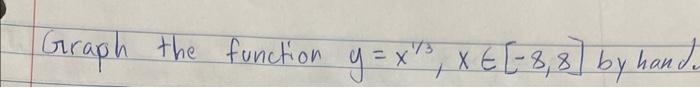 Graph the function y = x^{1/3}, x ∈ [-8,8] by hand.